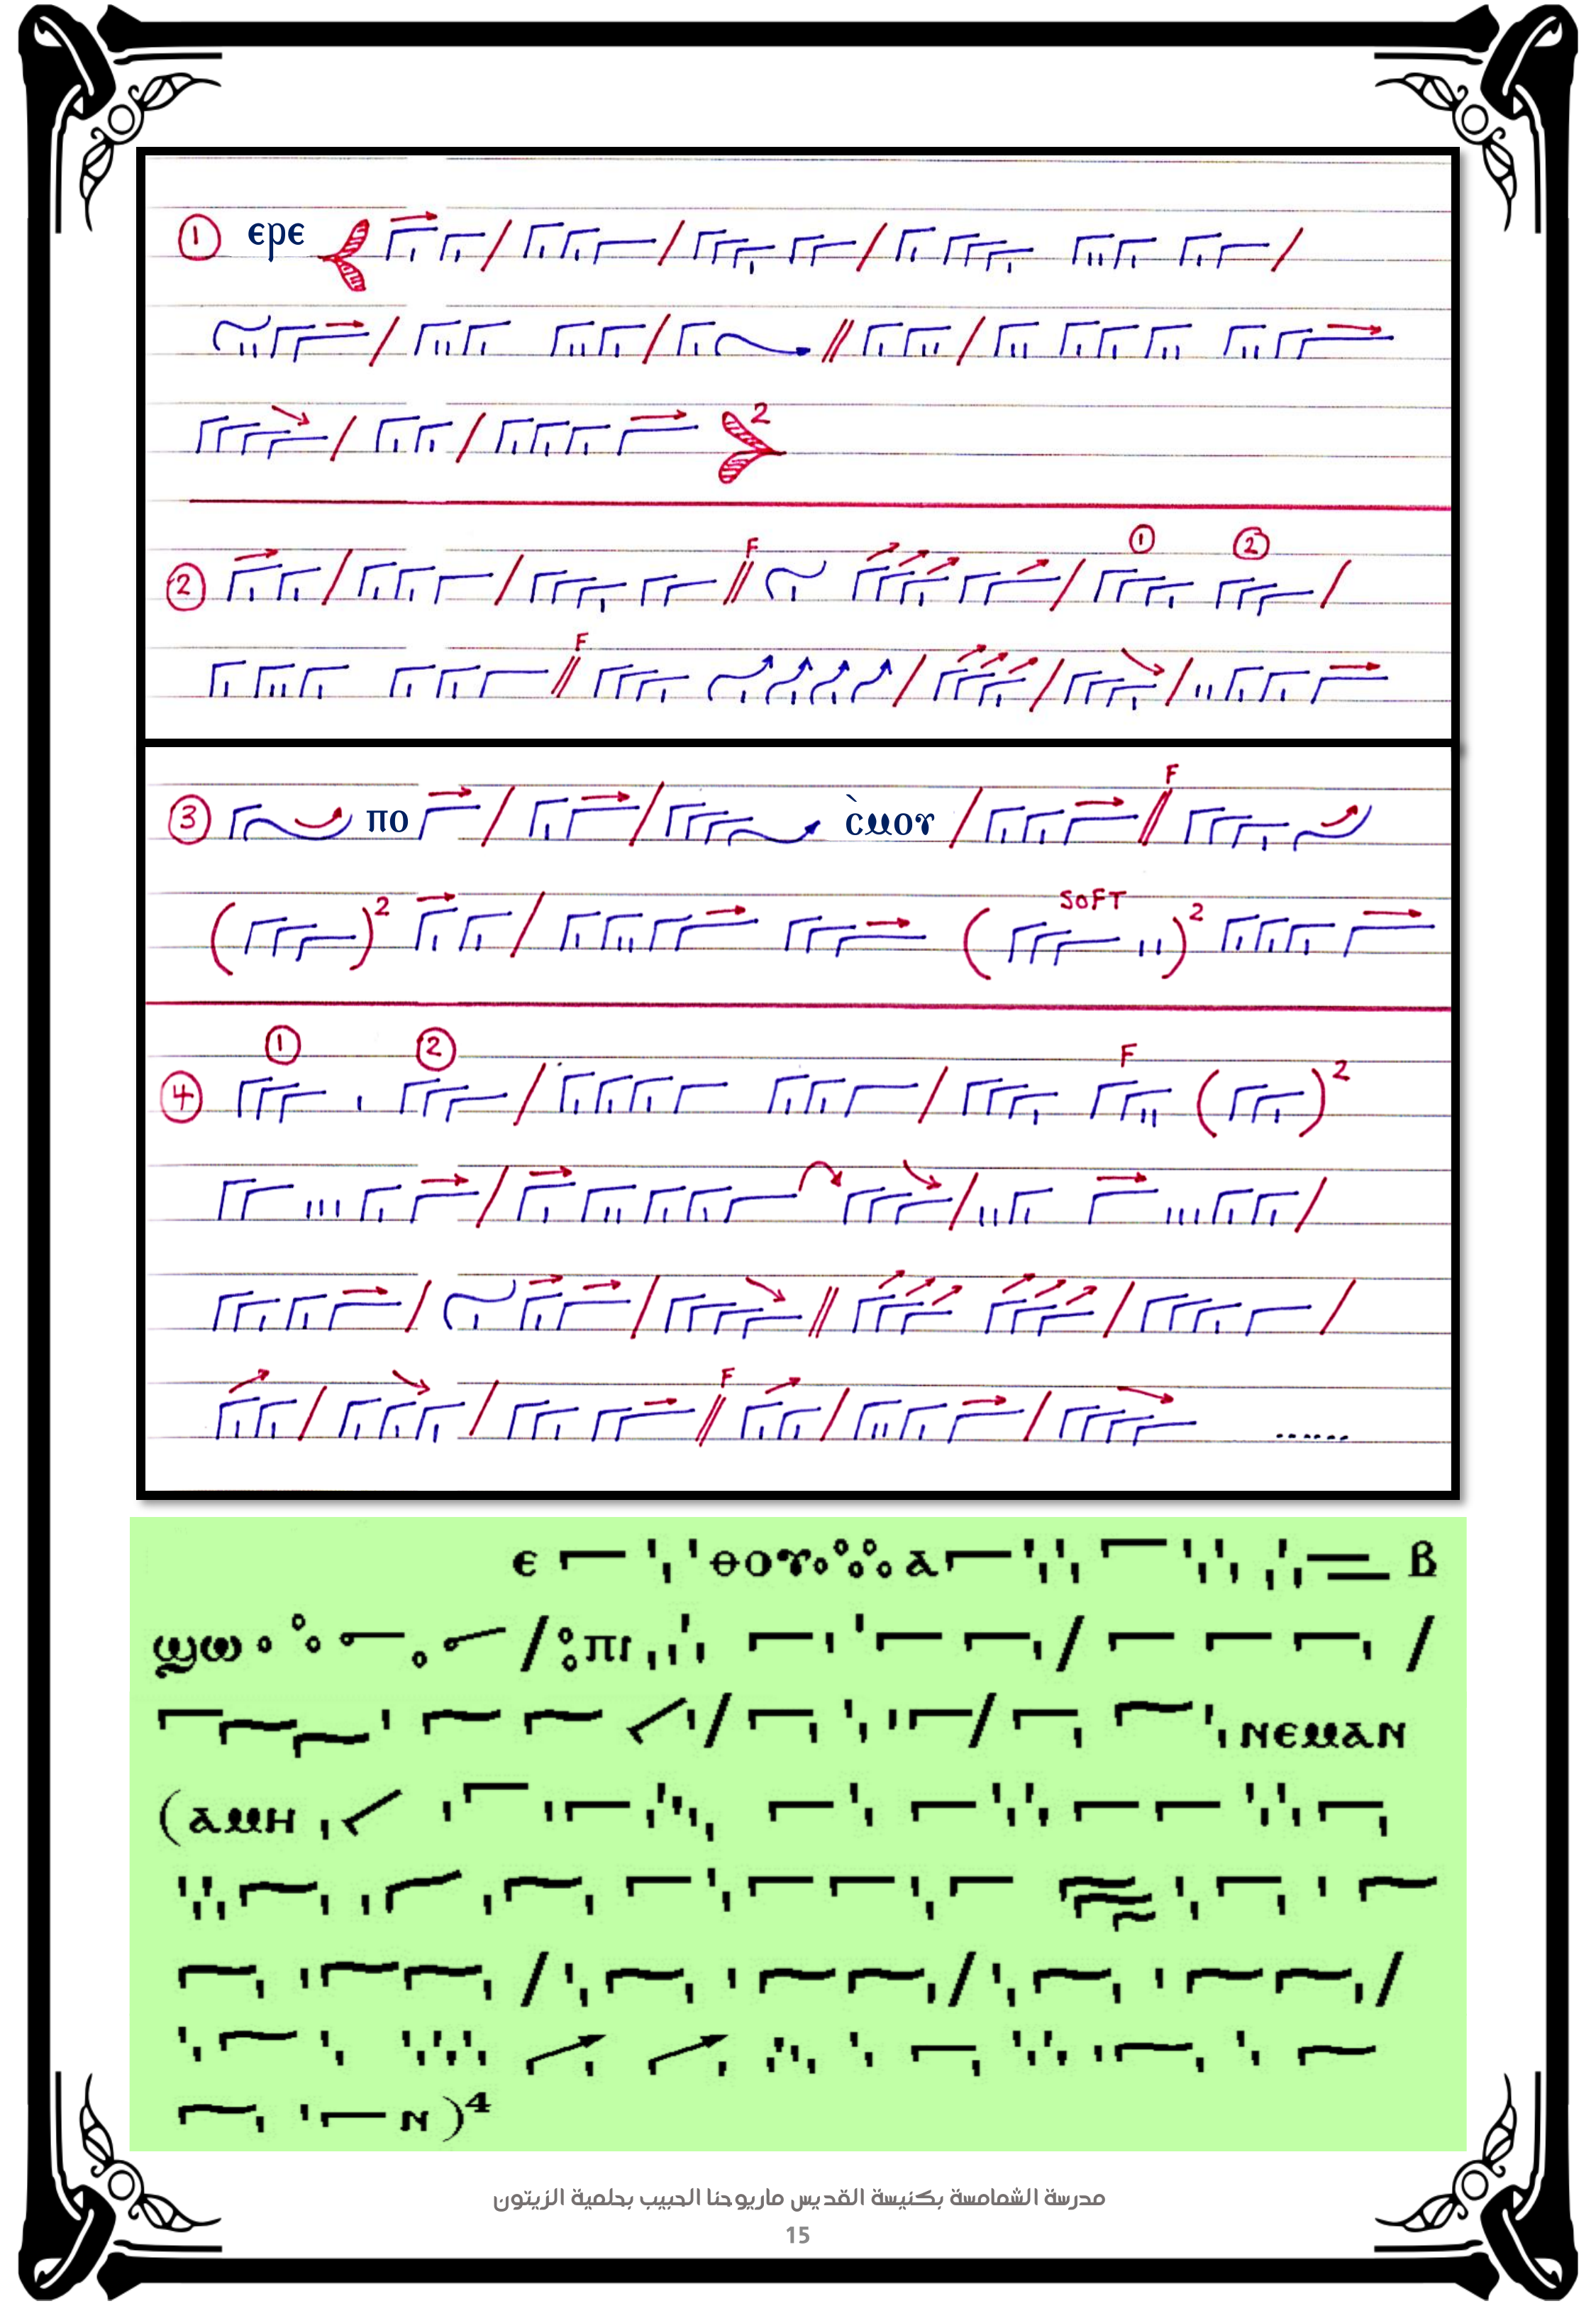 ① ⲉⲣⲉ
2
F ① ②
②
F
F
③ ⲡⲟ ⲥ̀ⲙⲟⲩ
2 SOFT 2
① ②
④ F 2
F
......
ⲉ ⲑⲟⲩ ⲁ ⲃ
ϣⲱ / ⲡⲓ / /
/ / ⲛⲉⲙⲁⲛ
(ⲁⲙⲏ
/ / /
ⲛ )4
مدرسة الشمامسة بكنيسة القديس ماريوحنا الحبيب بحلمية الزيتون
15